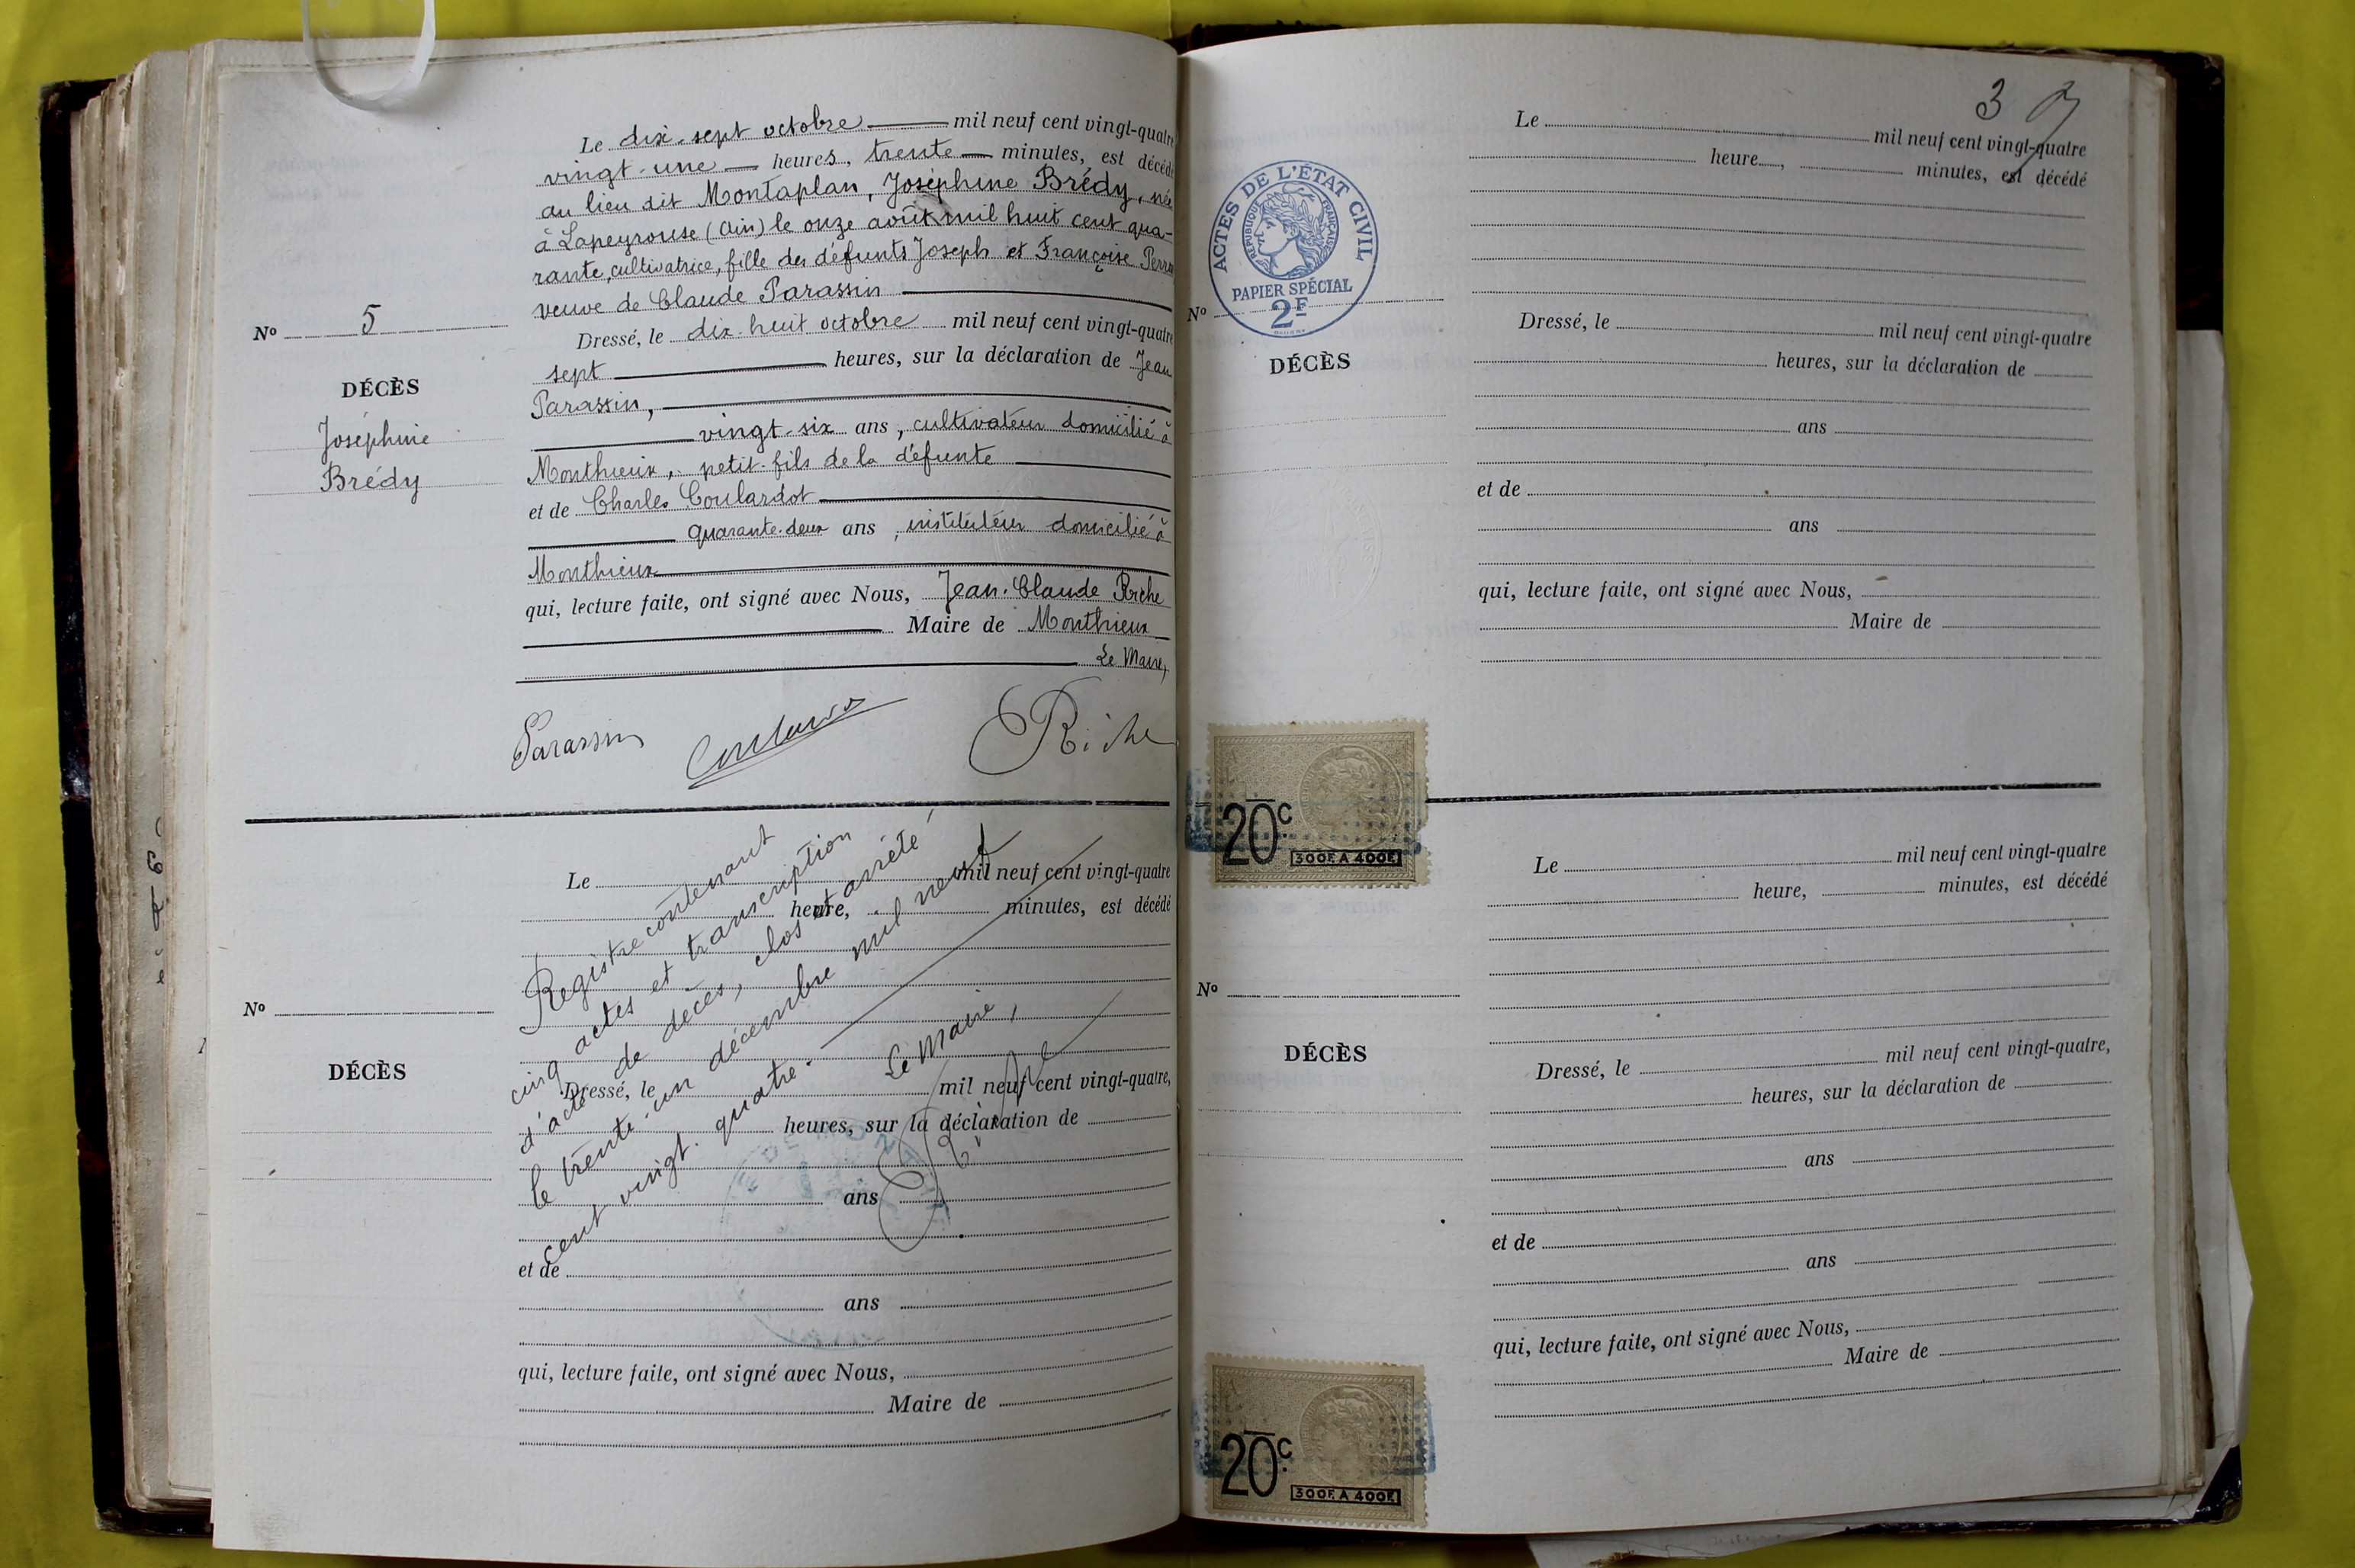 Le dix-sept octobre mil neuf cent vingt-quatre
vingt-une heures, trente minutes, est décédé
au lieu dit Montaplan, Joséphine Brédy, née
à Lapeyrouse (Ain) le onze août mil huit cent qua-
rante, cultivatrice, fille des défunts Joseph et Françoise
veuve de Claude Parassin
Nº 5
DÉCÈS
Joséphine
Brédy
Dressé, le dix-huit octobre mil neuf cent vingt-quatre
sept heures, sur la déclaration de Jean
Parassin,
vingt-six ans, cultivateur domicilié à
Monthieux, petit-fils de la défunte
et de Charles Coulardot
quarante-deux ans, instituteur domicilié à
Monthieux
qui, lecture faite, ont signé avec Nous, Jean-Claude Riche
Maire de Monthieux
Le Maire,
Parassin
Riche
Le mil neuf cent vingt-quatre
heure, minutes, est décédé
Nº
DÉCÈS
Dressé, le mil neuf cent vingt-quatre,
heures, sur la déclaration de
ans
et de
ans
qui, lecture faite, ont signé avec Nous,
Maire de
Registre contenant
cinq actes et transcription
d'acte de décès, clos et arrêté
le trente-un décembre mil neuf
cent vingt-quatre.
Le Maire,
Riche
3
Le mil neuf cent vingt-quatre
heure, minutes, est décédé
ACTES DE L'ÉTAT CIVIL
RÉPUBLIQUE FRANÇAISE
PAPIER SPÉCIAL
2F
Nº
DÉCÈS
Dressé, le mil neuf cent vingt-quatre
heures, sur la déclaration de
ans
et de
ans
qui, lecture faite, ont signé avec Nous,
Maire de
20c
300F. A 400F.
Le mil neuf cent vingt-quatre
heure, minutes, est décédé
Nº
DÉCÈS
Dressé, le mil neuf cent vingt-quatre,
heures, sur la déclaration de
ans
et de
ans
qui, lecture faite, ont signé avec Nous,
Maire de
20c
300F. A 400F.